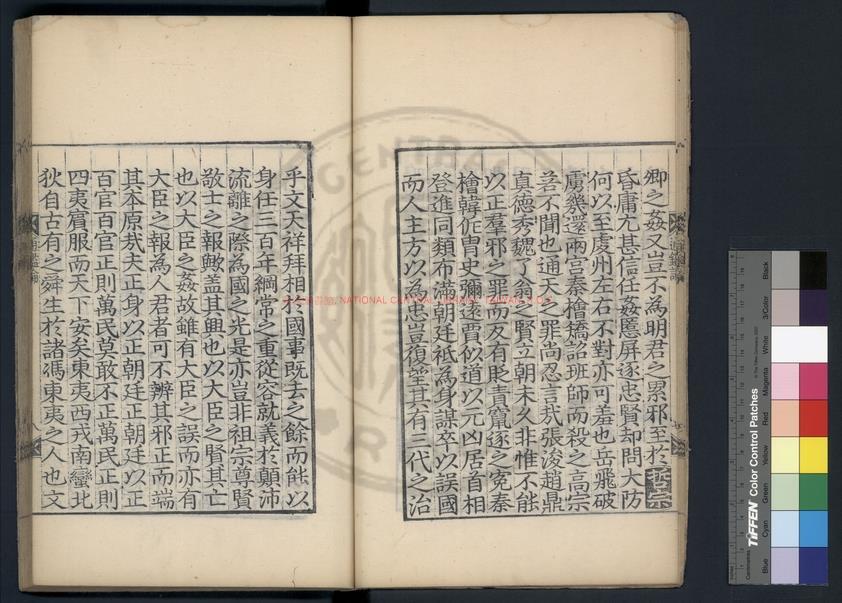 卿之姦又豈不為明君之累邪至於哲宗
昏庸尤甚信任姦慝屏逐忠賢却問大防
何以至虔州左右不對亦可羞也岳飛破
虜幾還兩宮秦檜矯詔班師而殺之高宗
若不聞也通天之罪尚忍言哉張浚趙鼎
真德秀魏了翁之賢立朝未久非惟不能
以正羣邪之罪而反有貶責竄逐之冤秦
檜韓侂冑史彌遠賈似道以元凶居首相
登進同類布滿朝廷祇為身謀卒以誤國
而人主方以為忠豈復望其有三代之治
乎文天祥拜相於國事既去之餘而能以
身任三百年綱常之重從容就義於顛沛
流離之際為國之光是亦豈非祖宗尊賢
敬士之報歟蓋其興也以大臣之賢其亡
也以大臣之姦故雖有大臣之誤而亦有
大臣之報為人君者可不辨其邪正而端
其本原哉夫正身以正朝廷正朝廷以正
百官百官正則萬民莫敢不正萬民正則
四夷賓服而天下安矣東夷西戎南蠻北
狄自古有之舜生於諸馮東夷之人也文
NATIONAL CENTRAL LIBRARY, TAIWAN, R.O.C.
TIFFEN Color Control Patches
Blue
Cyan
Green
Yellow
Red
Magenta
White
3/Color
Black